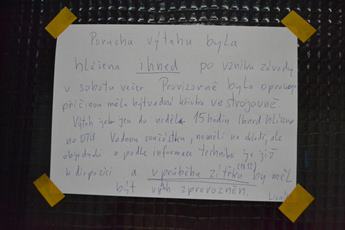 Porucha výtahu byla
hlášena ihned po vzniku závady
v sobotu večer Provizorně bylo opraveno
příčinou měla být vadná klička ve strojovně
Výtah jel jen do neděle 15 hodin Ihned hlášeno
na OTIS Vadnou součástku, neměli na skladě, ale
objednali a podle informace technika je již
k dispozici a v průběhu zítřka by měl
být výtah zprovozněn.